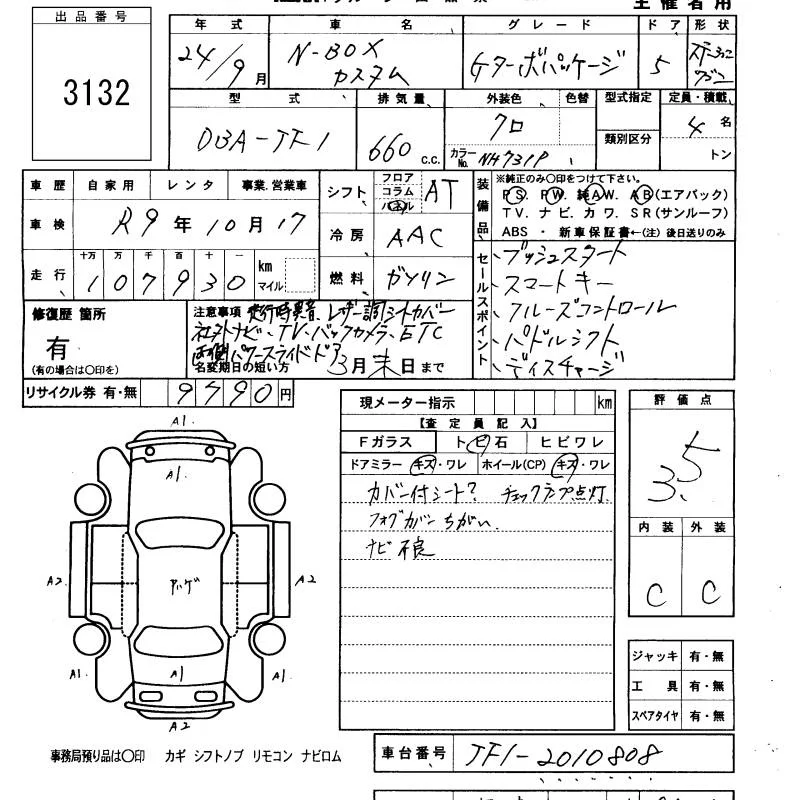 主催者用
出品番号
3132
年式 車名 グレード ドア 形状
24/9月 N-BOX カスタム Gターボパッケージ 5 ステーション ワゴン
型式 排気量 外装色 色替 型式指定 定員・積載
DBA-JF1 660 c.c. クロ カラーNo. NH731P 類別区分 4名 トン
車歴 自家用 レンタ 事業.営業車
シフト フロア コラム パネル AT
装備品 ※純正のみ〇印をつけて下さい。
PS. PW. 純AW. AB(エアバック)
TV. ナビ. カワ. SR(サンルーフ)
ABS ・ 新車保証書←(注)後日送りのみ
車検 R9年10月17
冷房 AAC
走行 十万 万 千 百 十 一 km マイル
107930
燃料 ガソリン
セールスポイント
プッシュスタート
スマートキー
クルーズコントロール
パドルシフト
ディスチャージ
修復歴 箇所
有
(有の場合は〇印を)
注意事項 走行時異音 レザー調シートカバー
社外ナビ、TV、バックカメラ、ETC
両側パワースライドドア
名変期日の短い方 3月末日まで
リサイクル券 有・無 9790円
現メーター指示 km
【査定員記入】
Fガラス トビ石 ヒビワレ
ドアミラー キズ・ワレ ホイール(CP) キズ・ワレ
カバー付シート? チェックランプ点灯.
フォグカバーちがい.
ナビ不良
評価点
3.5
内装 外装
C C
A1
A1
A1
A2. アゲ A2
A1 A1 A1
A2
ジャッキ 有・無
工具 有・無
スペアタイヤ 有・無
事務局預り品は〇印 カギ シフトノブ リモコン ナビロム
車台番号 JF1-2010808